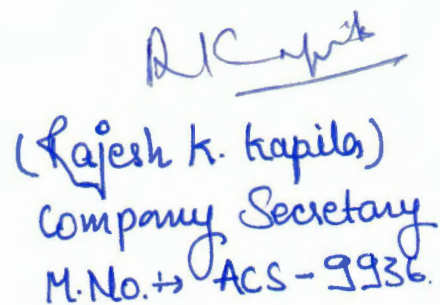 (Rajesh K. Kapila)
Company Secretary
M.No. → ACS - 9936.